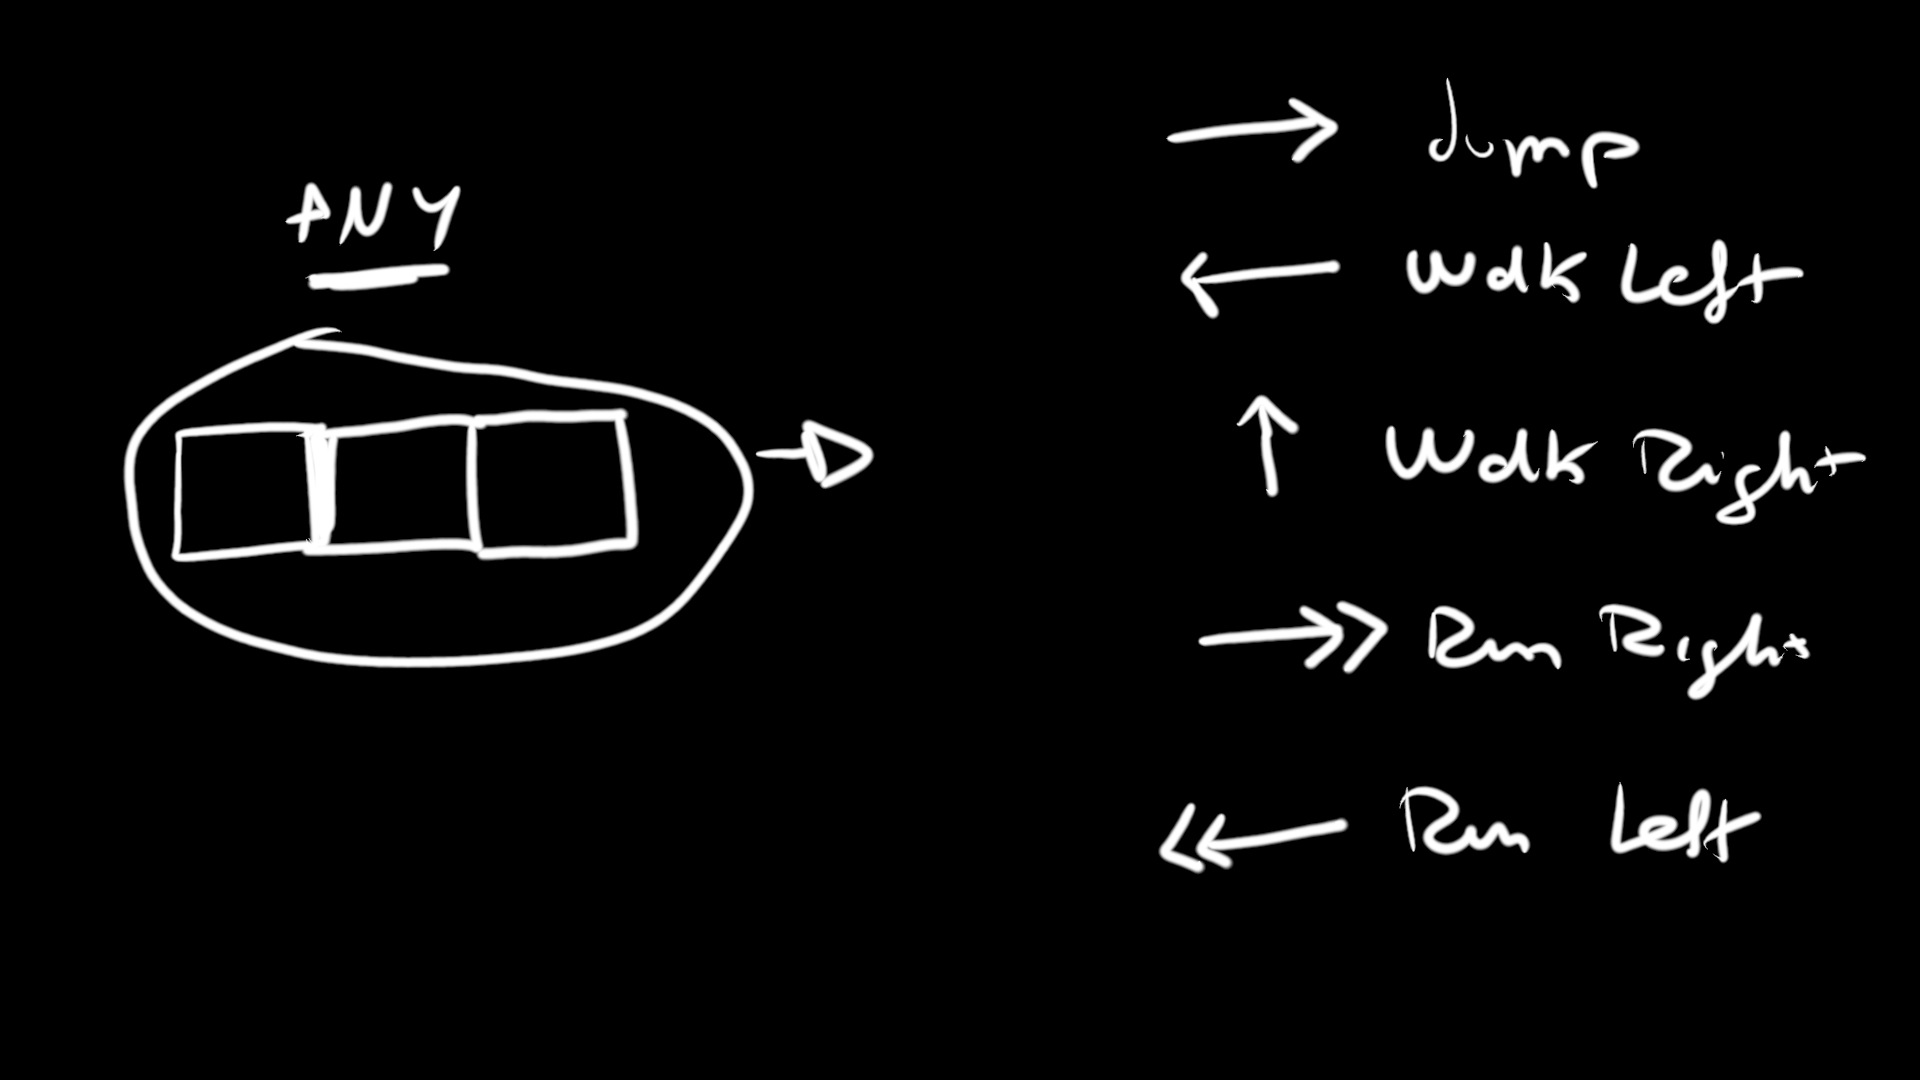 ANY
Jump
Walk Left
Walk Right
Run Right
Run Left